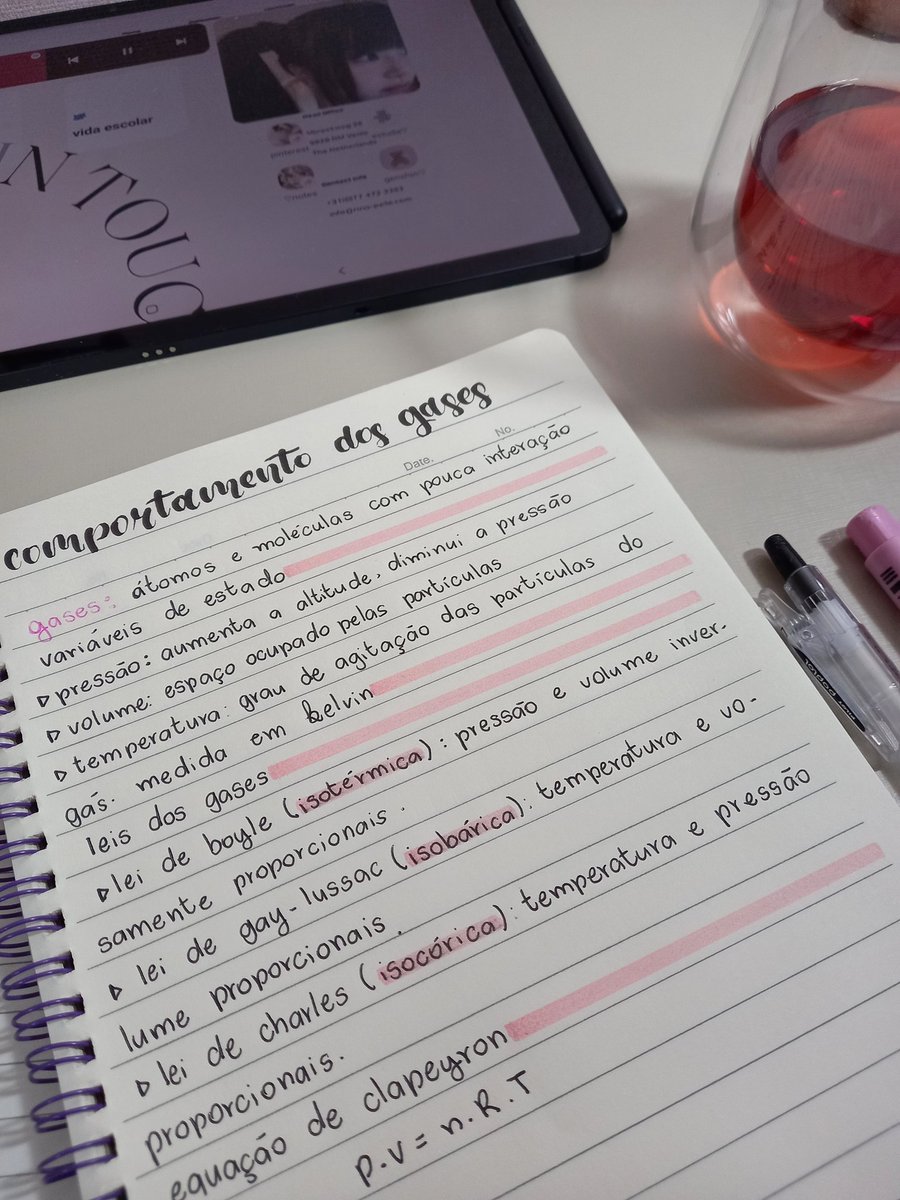 vida escolar
IN TOUC
pinterest
The Netherlands
notes
comportamento dos gases
Date.
No.
gases: átomos e moléculas com pouca interação
variáveis de estado
▷ pressão: aumenta a altitude, diminui a pressão
▷ volume: espaço ocupado pelas partículas
▷ temperatura: grau de agitação das partículas do
gás. medida em kelvin
leis dos gases
▷ lei de boyle (isotérmica): pressão e volume inver-
samente proporcionais.
▷ lei de gay-lussac (isobárica): temperatura e vo-
lume proporcionais.
▷ lei de charles (isocórica): temperatura e pressão
proporcionais.
equação de clapeyron
p.v = n.R.T